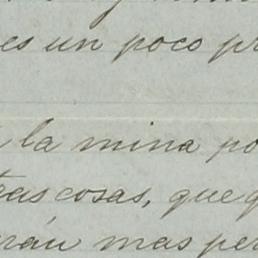 es un poco pr
la mina po
cosas, que q
rán mas per